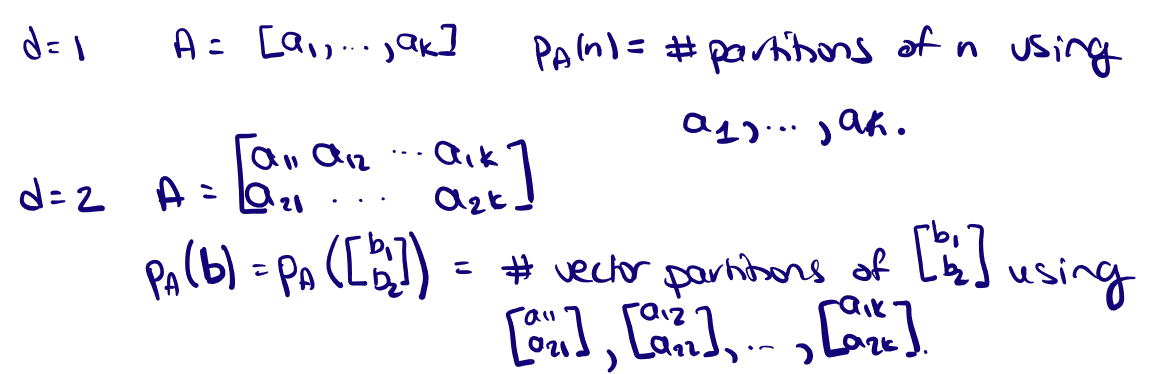 d=1 A = [a₁,...,aₖ] p_A(n) = # partitions of n using
a₁,...,aₖ.
d=2 A = [a₁₁ a₁₂ ... a₁ₖ
a₂₁ ... a₂ₖ]
p_A(b) = p_A([b₁ b₂]) = # vector partitions of [b₁ b₂] using
[a₁₁ a₂₁], [a₁₂ a₂₂],..., [a₁ₖ a₂ₖ].